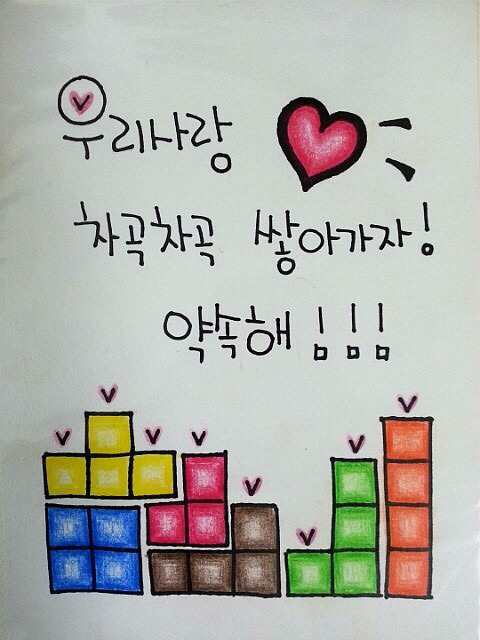 우리사랑
차곡차곡 쌓아가자!
약속해!!!